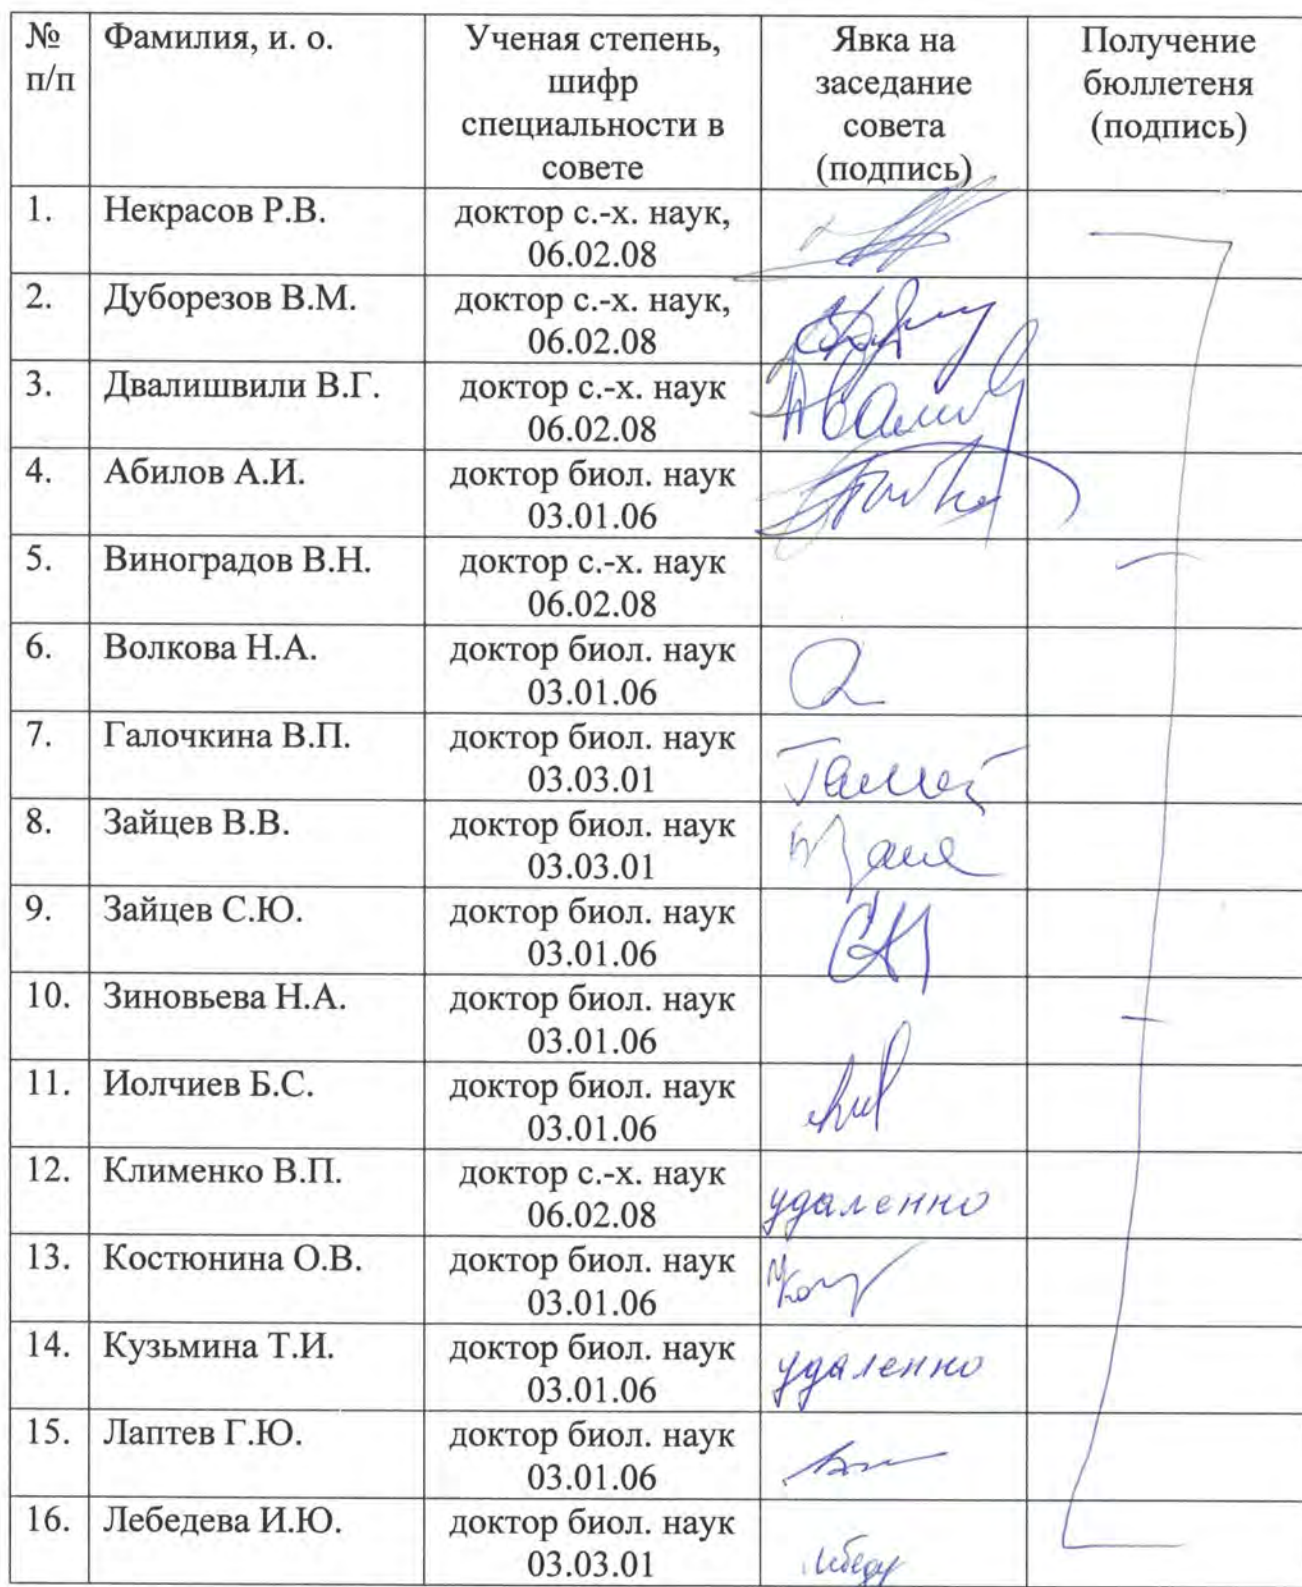 № п/п
Фамилия, и. о.
Ученая степень,
шифр
специальности в
совете
Явка на
заседание
совета
(подпись)
Получение
бюллетеня
(подпись)
1. Некрасов Р.В. доктор с.-х. наук,
06.02.08
2. Дуборезов В.М. доктор с.-х. наук,
06.02.08
3. Двалишвили В.Г. доктор с.-х. наук
06.02.08
4. Абилов А.И. доктор биол. наук
03.01.06
5. Виноградов В.Н. доктор с.-х. наук
06.02.08
6. Волкова Н.А. доктор биол. наук
03.01.06
7. Галочкина В.П. доктор биол. наук
03.03.01
8. Зайцев В.В. доктор биол. наук
03.03.01
9. Зайцев С.Ю. доктор биол. наук
03.01.06
10. Зиновьева Н.А. доктор биол. наук
03.01.06
11. Иолчиев Б.С. доктор биол. наук
03.01.06
12. Клименко В.П. доктор с.-х. наук
06.02.08 удаленно
13. Костюнина О.В. доктор биол. наук
03.01.06
14. Кузьмина Т.И. доктор биол. наук
03.01.06 удаленно
15. Лаптев Г.Ю. доктор биол. наук
03.01.06
16. Лебедева И.Ю. доктор биол. наук
03.03.01